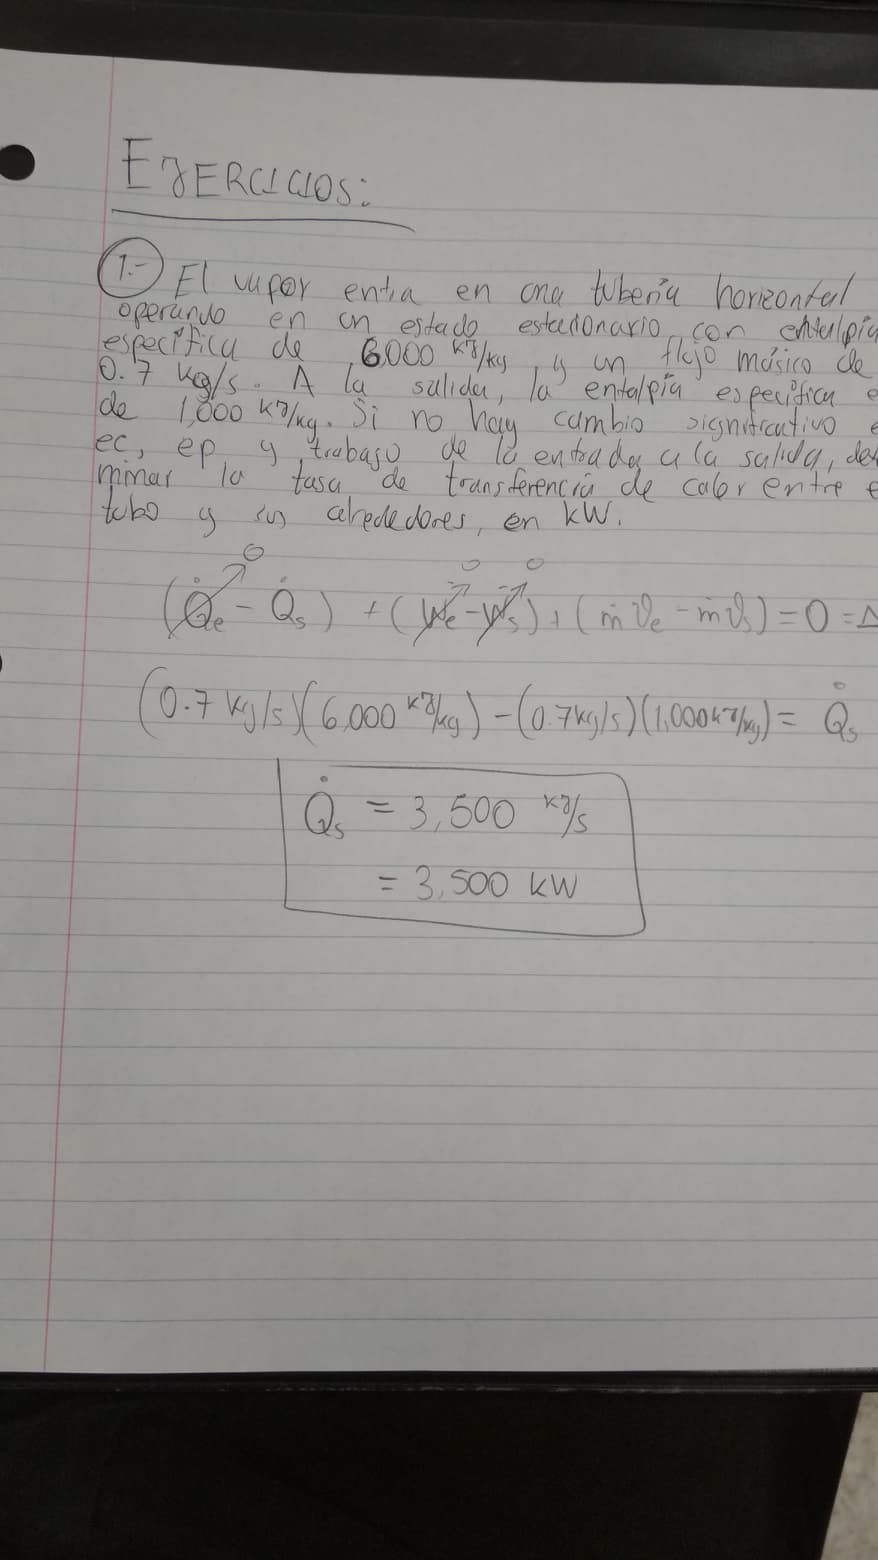 EJERCICIOS:
1.- El vapor entra en una tubería horizontal
operando en un estado estacionario, con entalpía
específica de 6,000 kJ/kg y un flujo másico de
0.7 kg/s. A la salida, la entalpía específica e
de 1,000 kJ/kg. Si no hay cambio significativo e
ec, ep y trabajo de la entrada a la salida, de
minar la tasa de transferencia de calor entre e
tubo y sus alrededores, en kW.
(Q̇e - Q̇s) + (Ẇe - Ẇs) + (ṁϑe - ṁϑs) = 0 = Δ
(0.7 kg/s)(6,000 kJ/kg) - (0.7 kg/s)(1,000 kJ/kg) = Q̇s
Q̇s = 3,500 kJ/s
= 3,500 kW